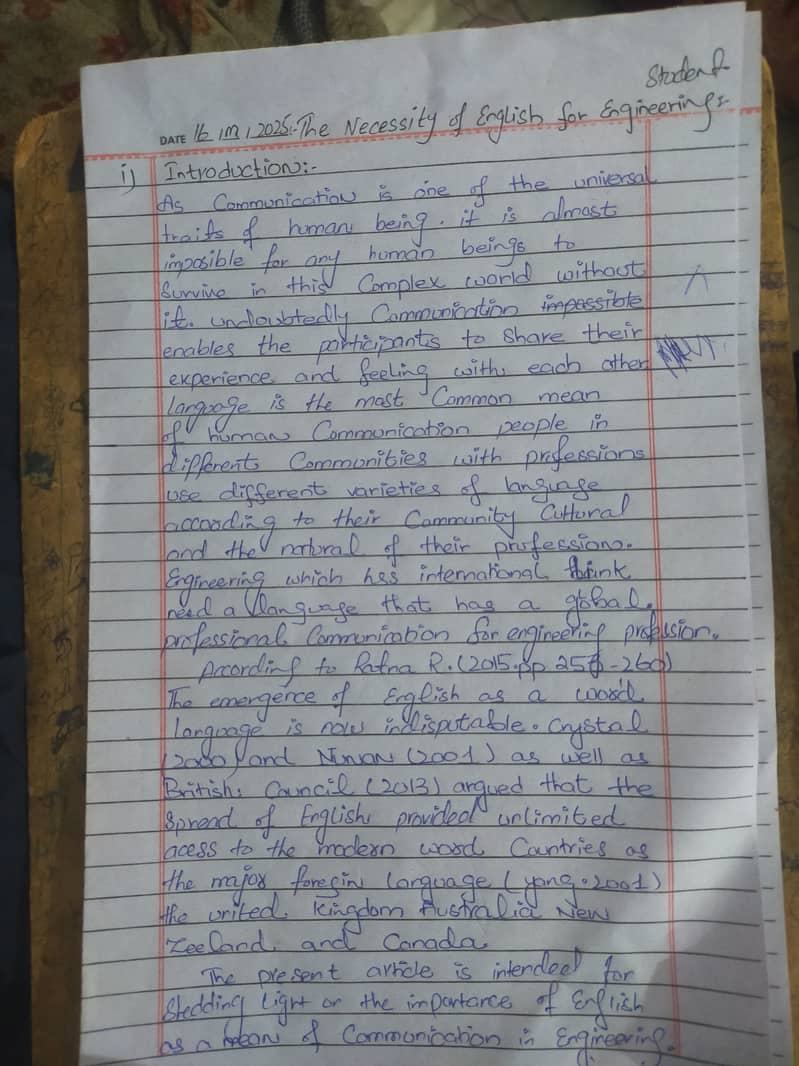 Student
DATE 16 / M / 2025:-The Necessity of English for Engineering:-
i) Introduction:-
As Communication is one of the universal
traits of human being. it is almost
imposible for any human beings to
Survive in this Complex world without
it. undoubtedly Communication impossible
enables the participants to share their
experience and feeling with each other
language is the most Common mean
of human Communication people in
different Communities with professions
use different varieties of language
according to their Community Cultural
and the natural of their profession.
Engineering which has international think
need a language that has a global.
professional Communication for engineering profession.
According to Ratna R. (2015.pp 256-260)
The emergence of English as a word
language is now indisputable. Crystal
(2000) and Nunan (2001) as well as
British Council (2013) argued that the
spread of English provided unlimited
acess to the modern word Countries as
the major foregin language (yong.2001)
the united kingdom Australia New
Zeeland and Canada
The present article is intended for
Stedding light on the importance of English
as a mean of Communication in Engineering.